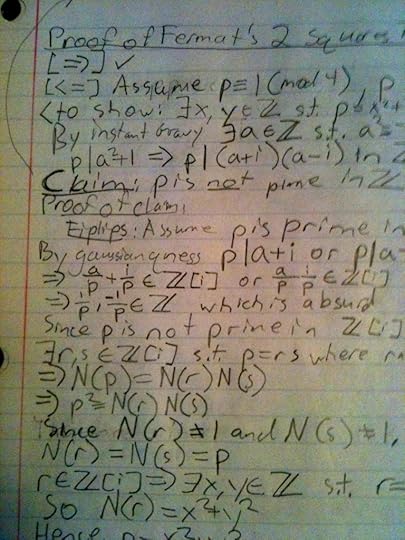 Proof of Fermat's 2 Squares
[=>] ✓
[<=] Assume p≡1(mod 4), p
<to show: ∃x,y∈ℤ s.t. p=x²+
By instant Gravy ∃a∈ℤ s.t. a²≡
p|a²+1 => p|(a+i)(a-i) in ℤ
Claim: p is not prime in ℤ
Proof of claim:
Eiplips: Assume p is prime in
By gaussianqness p|a+i or p|a-
=> a/p + i/p ∈ ℤ[i] or a/p - i/p ∈ ℤ[i]
=> 1/p, -1/p ∈ ℤ which is absurd
Since p is not prime in ℤ[i]
∃r,s∈ℤ[i] s.t. p=rs where
=> N(p)=N(r)N(s)
=> p²=N(r)N(s)
Since N(r)≠1 and N(s)≠1,
N(r)=N(s)=p
r∈ℤ[i]=>∃x,y∈ℤ s.t. r=
So N(r)=x²+y²
Hence p=x²+y²